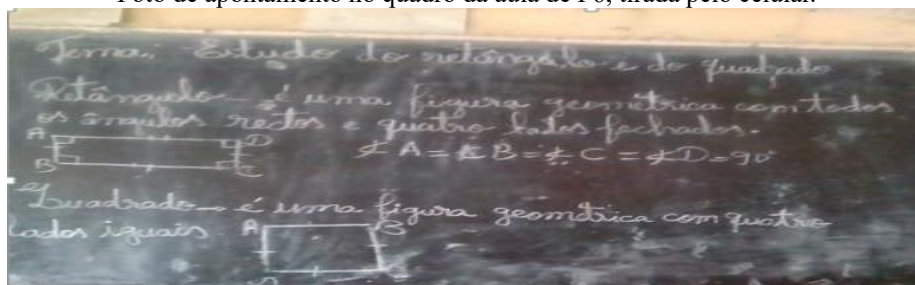 Foto de apontamento no quadro da aula de P6, tirada pelo celular.
Tema: Estudo do retângulo e do quadrado
Retângulo - é uma figura geométrica com todos
os ângulos rectos e quatro lados fechados.
A D
∡ A = ∡ B = ∡ C = ∡ D = 90°
B C
Quadrado - é uma figura geométrica com quatro
lados iguais A B
D C